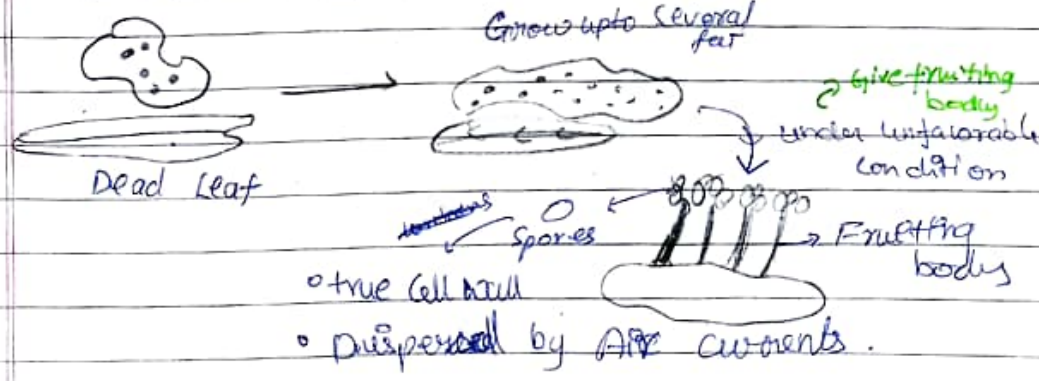 Grow upto Several
feet
Give fruiting
body
under unfavorable
condition
Dead Leaf
Spores
Fruiting
body
• true Cell wall
• Dispersed by Air currents.